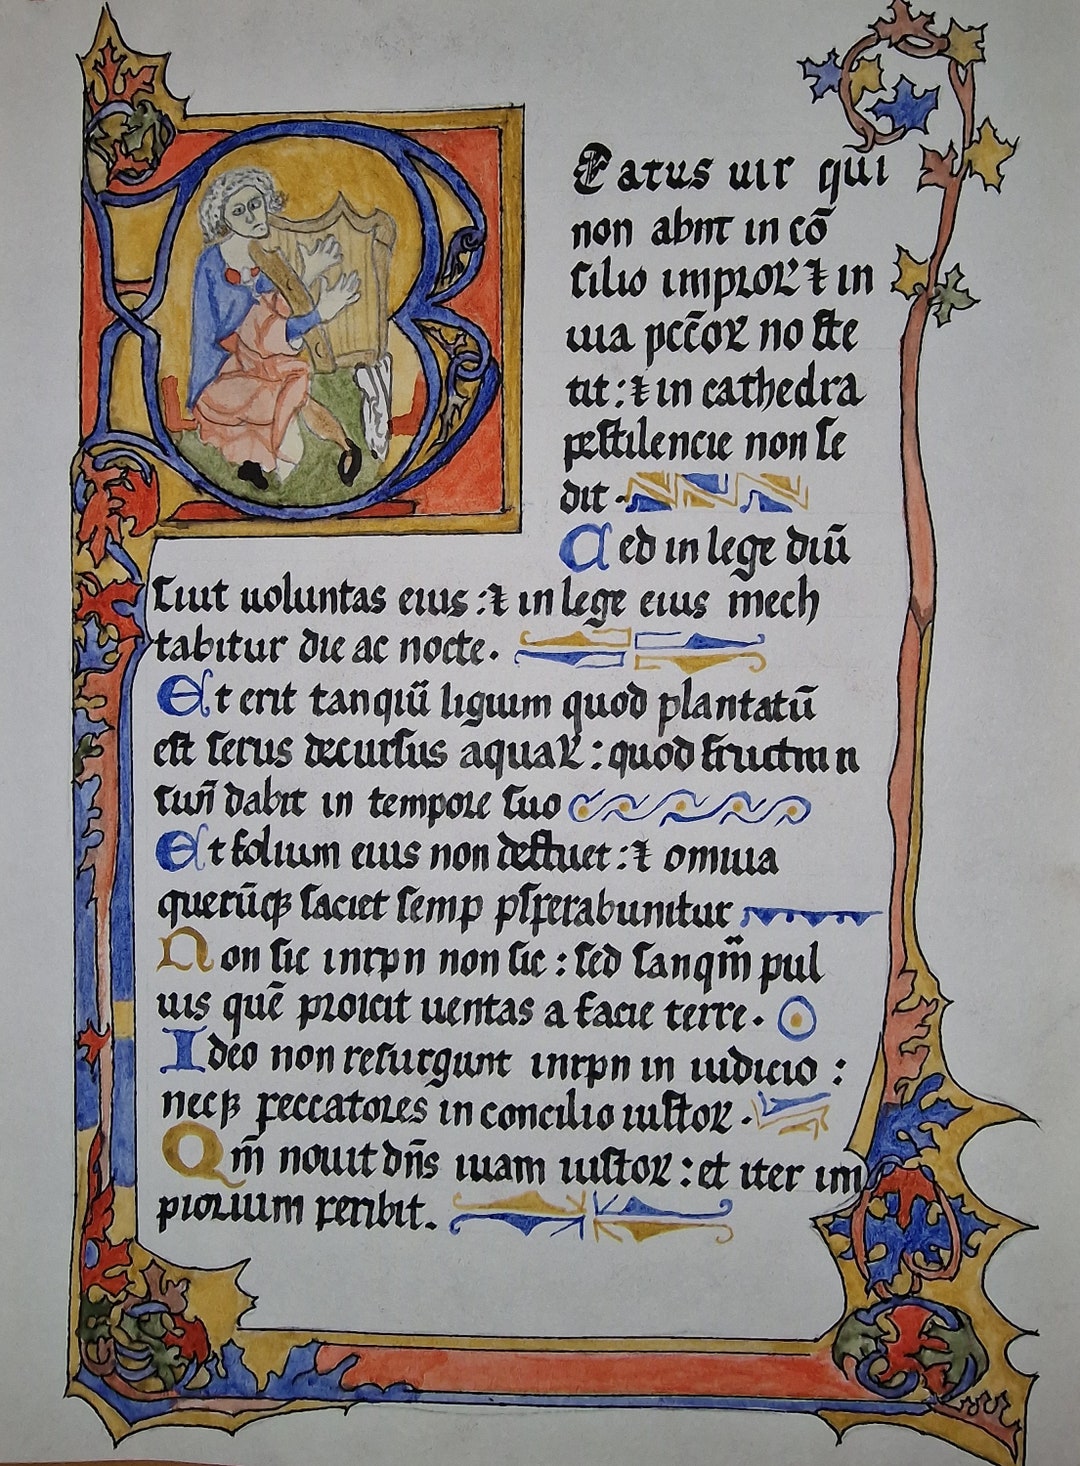 Eatus uir qui
non abnt in cō
silio impioꝝ ⁊ in
uia pcc̄oꝝ no ste
tit : ⁊ in cathedra
pestilencie non se
dit ·
Ced in lege diū
siut uoluntas eius : ⁊ in lege eius mech
tabitur die ac nocte ·
Et erit tanqiū liguim quod plantatū
est serus decursus aquaꝝ : quod fructm n
suñ dabit in tempore suo
Et folium eius non defluet : ⁊ omiua
querūqꝫ faciet semp psperabunitur
Non sic inrpn non sic : sed sanqm̄ pul
uis quē proicit uentas a facie terre ·
Ideo non resurgunt inrpn in iudicio :
necqꝫ peccatores in concilio iustoꝝ ·
Qm̄ nouit dñs uiam iustoꝝ : et iter im
pioruum peribit ·